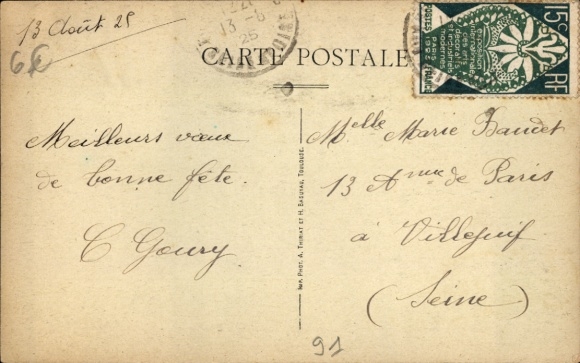 13 Août 25
6€
13 - 8
25
CARTE POSTALE
15c RF
POSTES FRANCE
exposition
internationale
des arts
décoratifs
et industriels
modernes
PARIS 1925
Meilleurs vœux
de bonne fête.
C Goury
Melle Marie Baudet
13 Anue de Paris
à Villejuif
(Seine)
IMP. PHOT. A. THIRIAT ET H. BASUYAU, TOULOUSE.
91